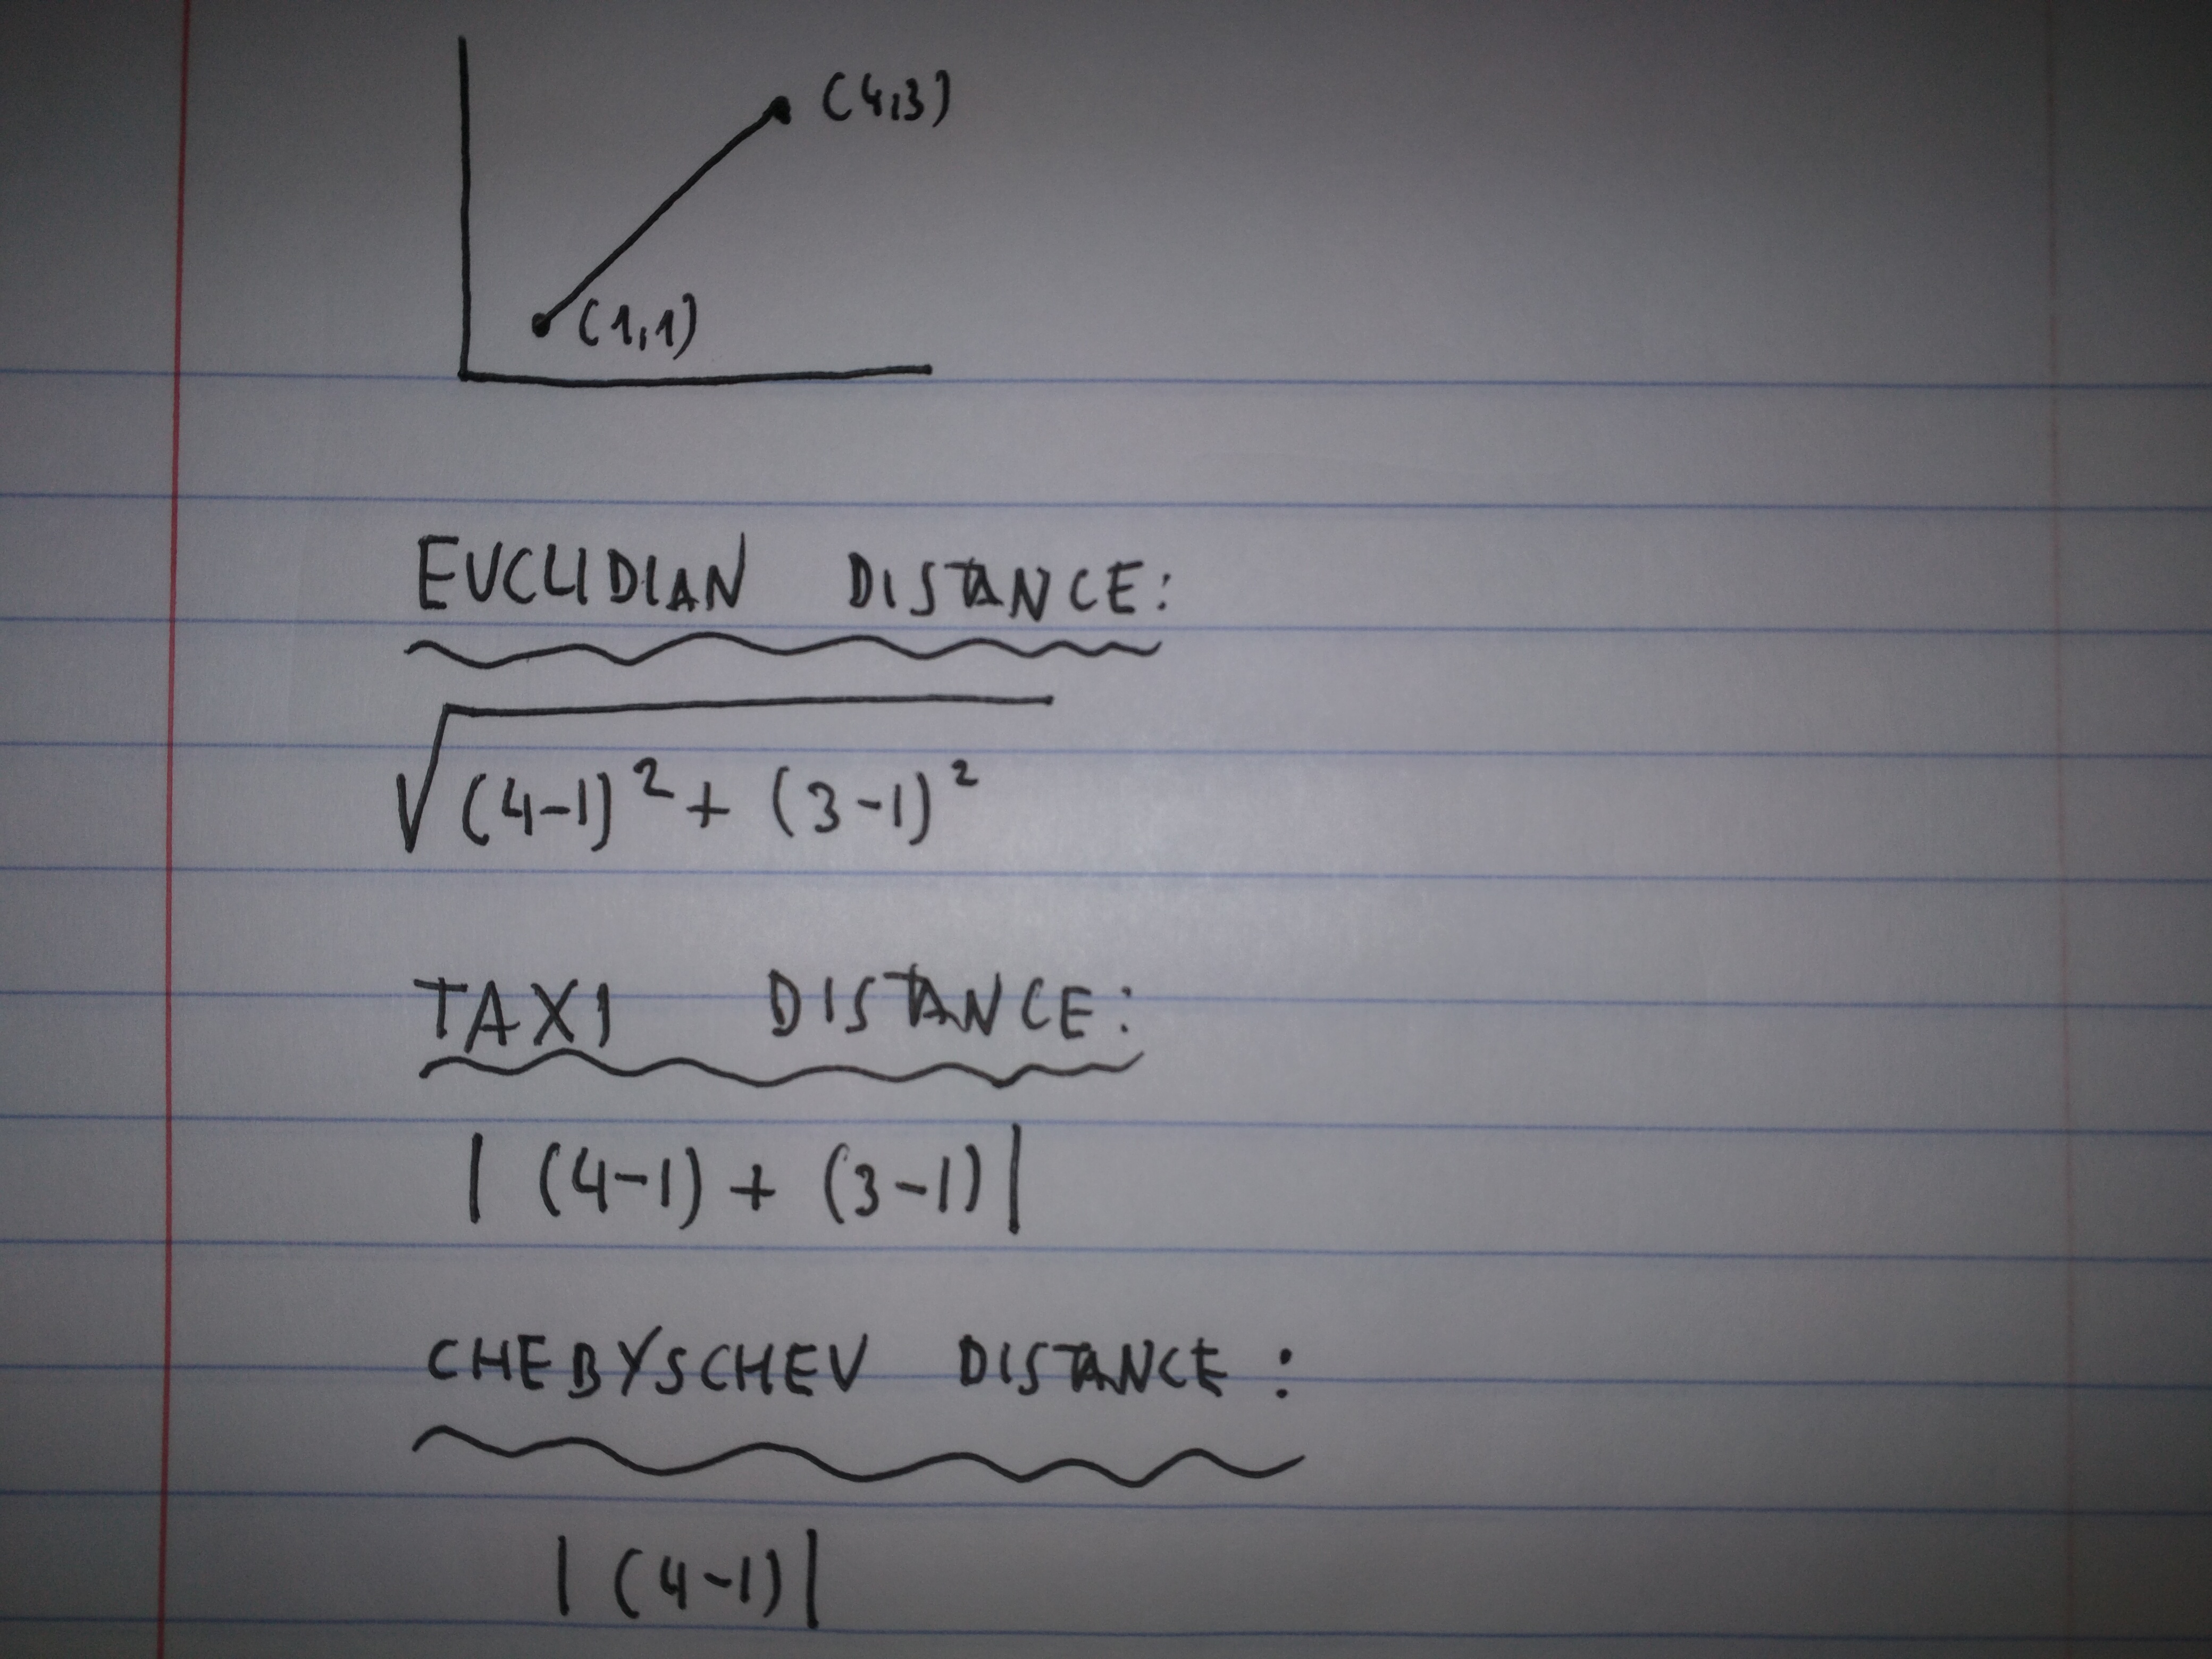 (4,3)
(1,1)
EUCLIDIAN DISTANCE:
√(4-1)² + (3-1)²
TAXI DISTANCE:
| (4-1) + (3-1)|
CHEBYSCHEV DISTANCE:
| (4-1)|